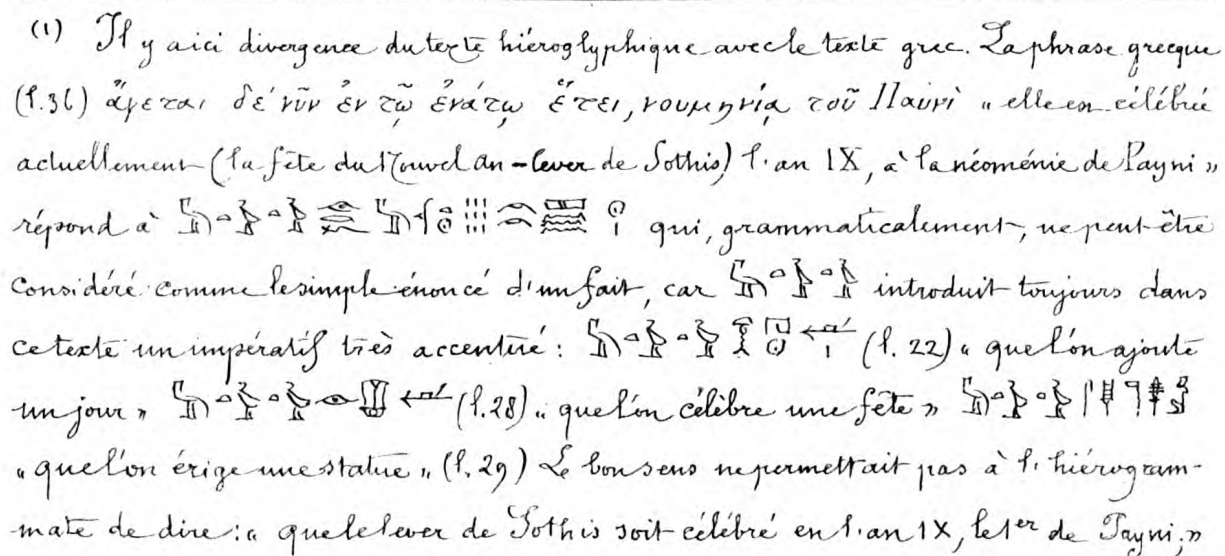 (1) Il y a ici divergence du texte hiéroglyphique avec le texte grec. La phrase grecque
(l.36) ἄγεται δὲ νῦν ἐν τῷ ἐνάτῳ ἔτει, νουμηνίᾳ τοῦ Παϋνὶ « elle est célébrée
actuellement (la fête du Nouvel an – lever de Sothis) l'an IX, à la néoménie de Payni »
répond à qui, grammaticalement, ne peut être
considéré comme le simple énoncé d'un fait, car introduit toujours dans
ce texte un impératif très accentué : (l. 22) « que l'on ajoute
un jour » (l.28) « que l'on célèbre une fête »
« que l'on érige une statue » (l. 29) Le bon sens ne permettait pas à l'hiérogram-
mate de dire : « que le lever de Sothis soit célébré en l'an IX, le 1er de Payni. »